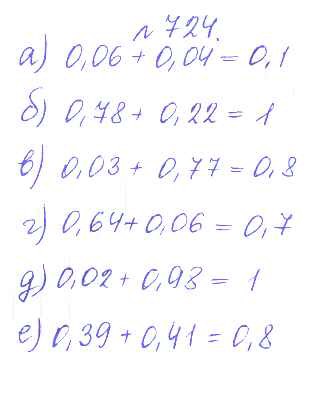 № 724.
а) 0,06 + 0,04 = 0,1
б) 0,78 + 0,22 = 1
в) 0,03 + 0,77 = 0,8
г) 0,64 + 0,06 = 0,7
д) 0,02 + 0,98 = 1
е) 0,39 + 0,41 = 0,8